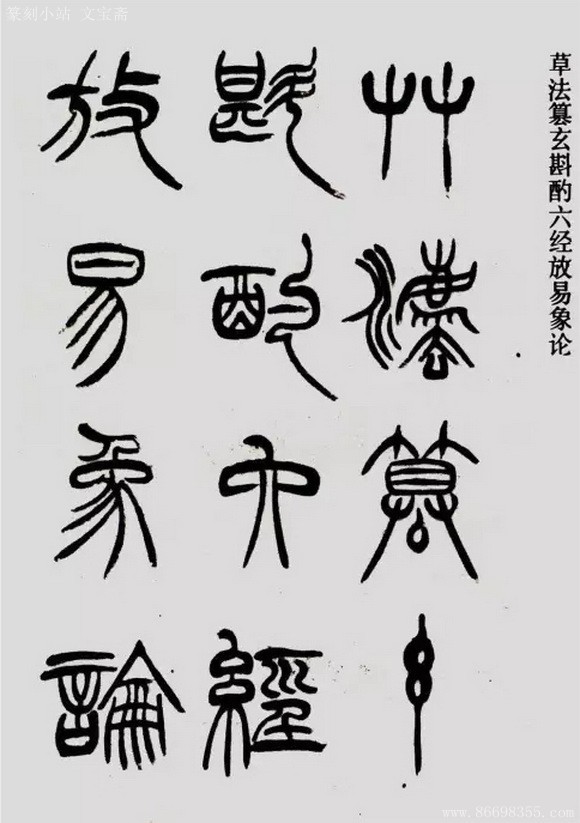 篆刻小站 文宝斋
草法篡玄斟酌六经放易象论
艸灋篡玄
斟酌六經
放易象論
www.86698355.com